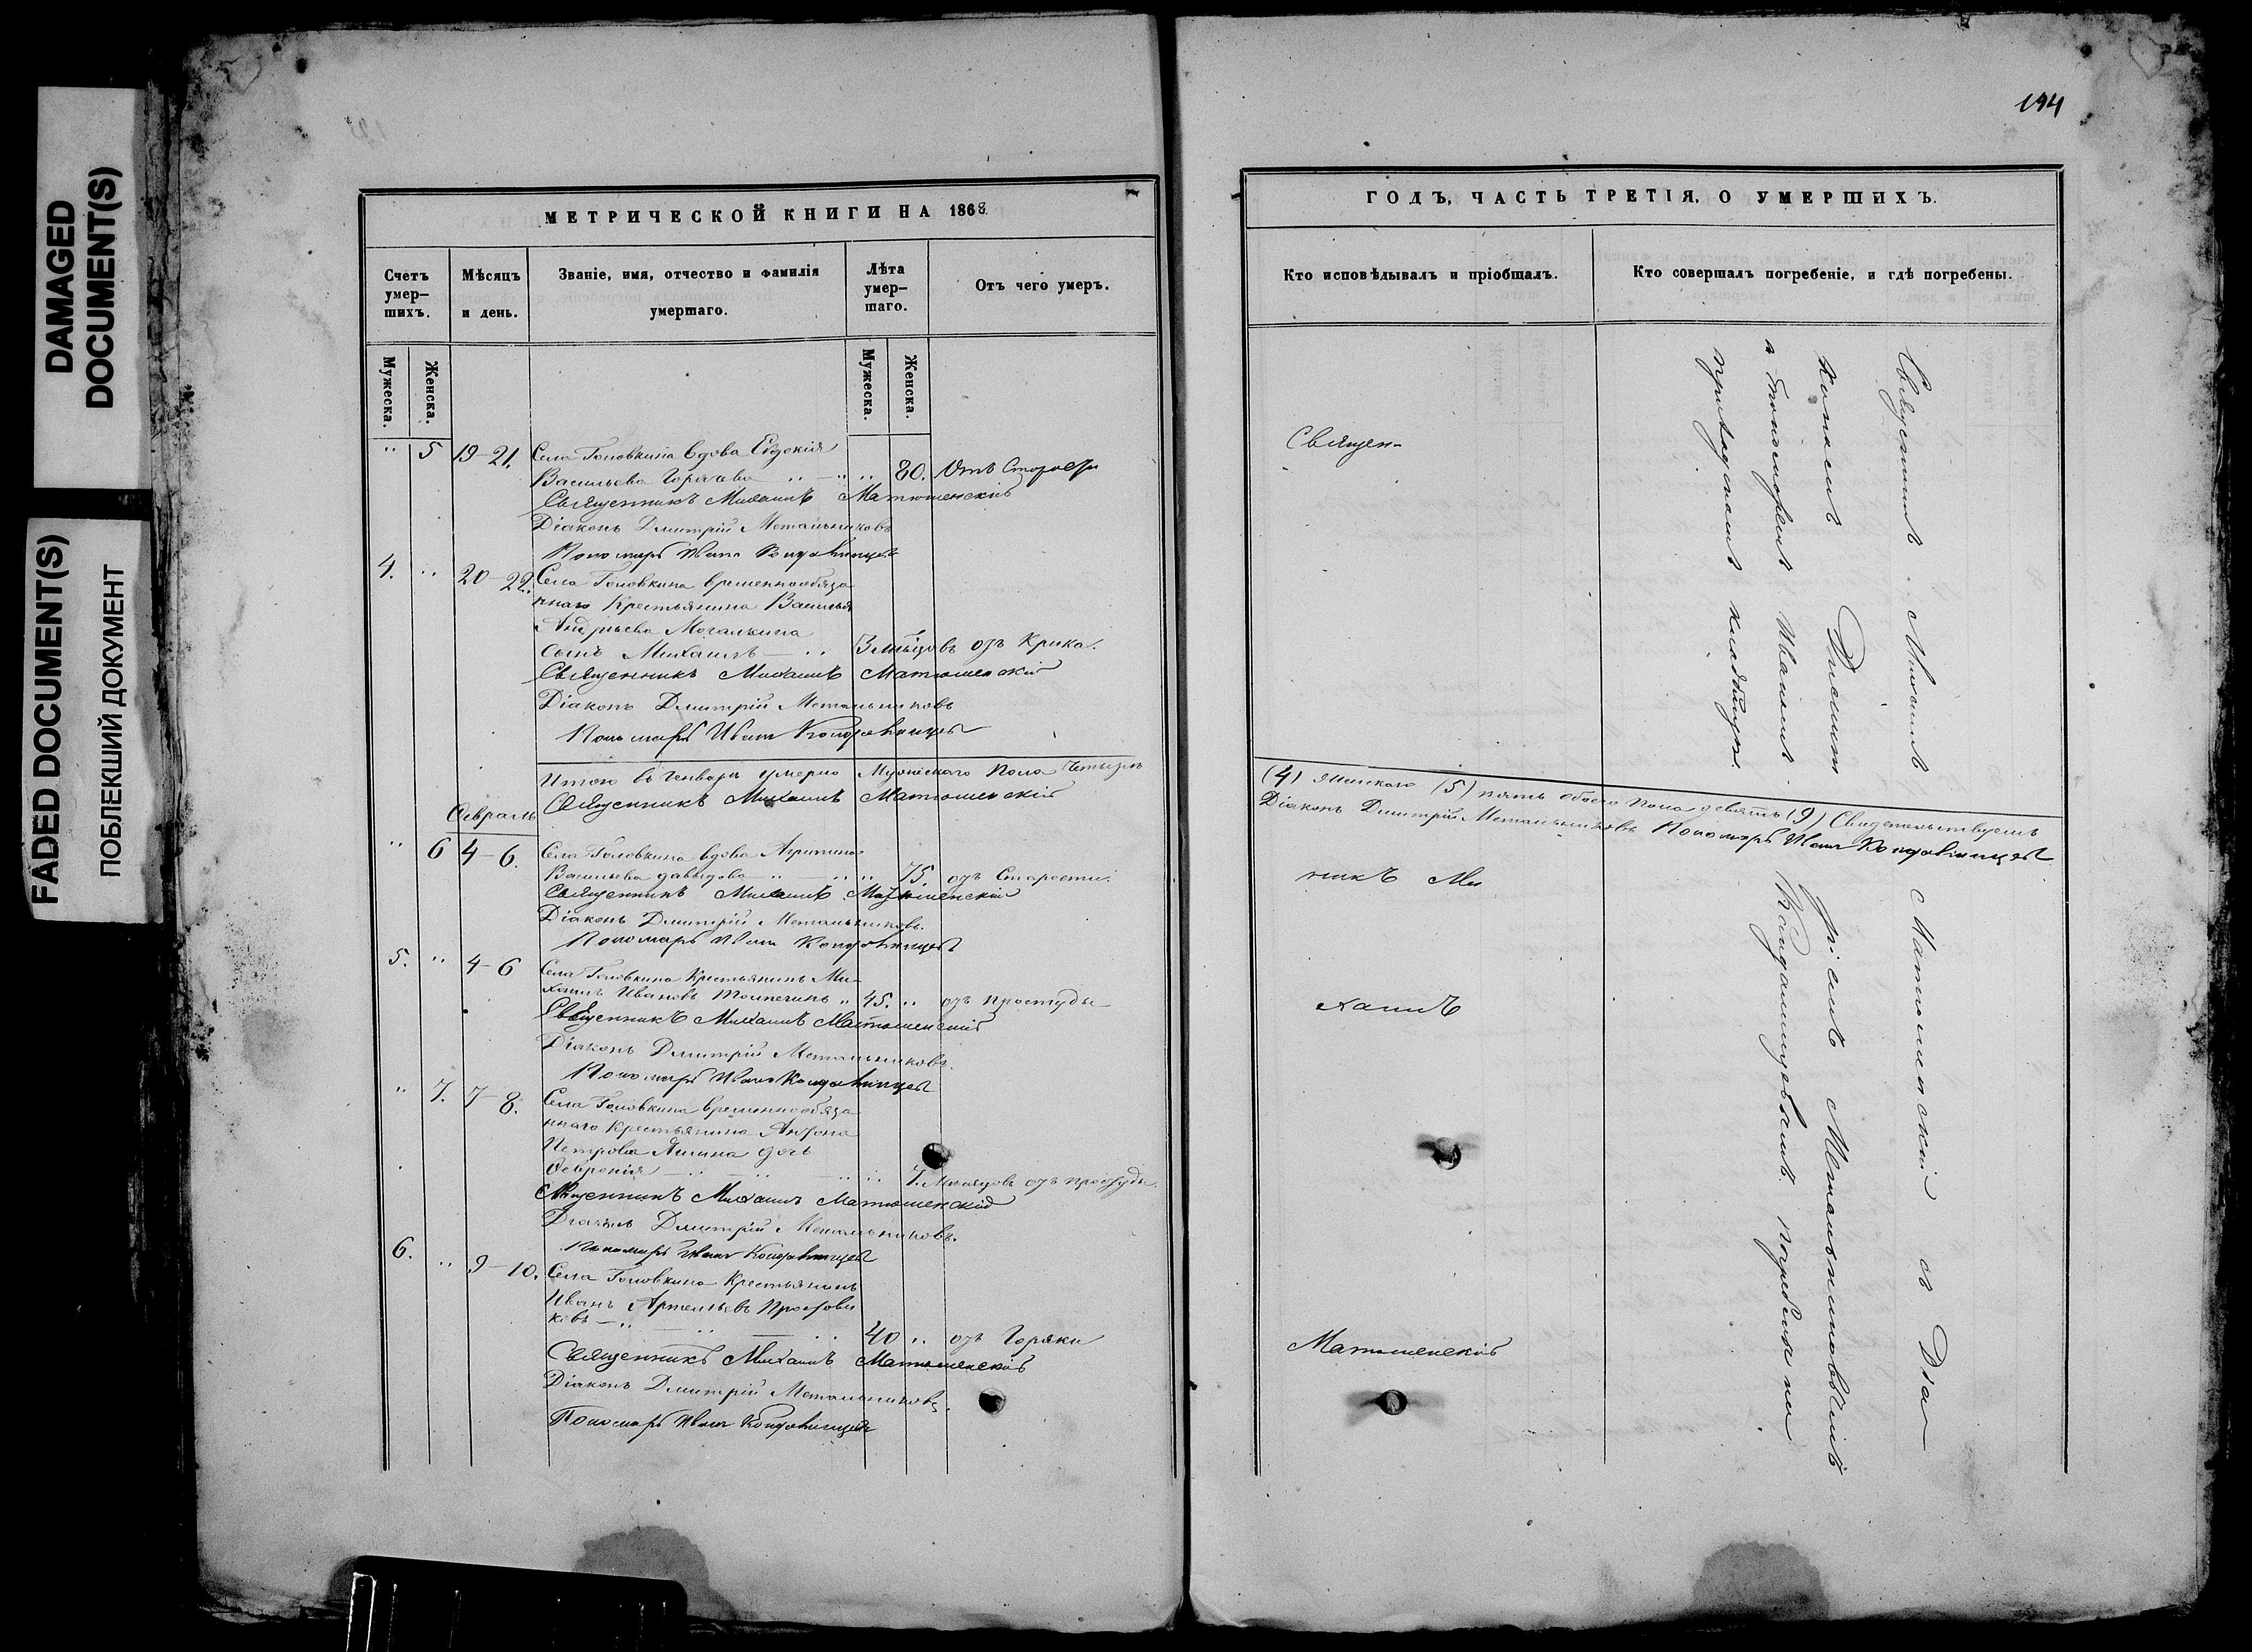 DAMAGED
DOCUMENT(S)
FADED DOCUMENT(S)
ПОБЛЕКШИЙ ДОКУМЕНТ
МЕТРИЧЕСКОЙ КНИГИ НА 1868
Счетъ умер-шихъ.
Мѣсяцъ и день.
Званіе, имя, отчество и фамилія умершаго.
Лѣта умер-шаго.
Отъ чего умеръ.
Мужеска. Женска. Мужеска. Женска.
" 5 19-21. Села Головкина вдова Евдокія
Васильева Горячева " - " " 80. Отъ Старости
Священникъ Михаилъ Матюшенскій
Діаконъ Дмитрій Метальниковъ
Пономарь Иванъ
4. " 20-22. Села Головкина временнообяза
ннаго Крестьянина Василья
Андрѣева Мочалкина
сынъ Михаилъ - " 3 мѣсяцовъ отъ Крика.
Священникъ Михаилъ Матюшенскій
Діаконъ Дмитрій Метальниковъ
Пономарь Иванъ
Итого въ Генварѣ умерло Мужескаго пола Четыре
Священникъ Михаилъ Матюшенскій
Февраль
" 6 4-6. Села Головкина вдова Агрипина
Васильева Давыдова - " - " " 75. отъ Старости.
Священникъ Михаилъ Матюшенскій
Діаконъ Дмитрій Метальниковъ.
Пономарь Иванъ
5. " 4-6 Села Головкина Крестьянинъ Ми-
хаилъ Ивановъ " 45. " отъ простуды
Священникъ Михаилъ Матюшенскій
Діаконъ Дмитрій Метальниковъ.
Пономарь Иванъ
" 7. 7-8. Села Головкина временнообяза
ннаго Крестьянина Антона
Петрова дочь
Февронія - " - " " 7. Мѣсяцовъ отъ простуды.
Священникъ Михаилъ Матюшенскій
Діаконъ Дмитрій Метальниковъ.
Пономарь Иванъ
6. " 9-10. Села Головкина Крестьянинъ
Иванъ
ковъ - " 40 " отъ Горячки
Священникъ Михаилъ Матюшенскій
Діаконъ Дмитрій Метальниковъ.
Пономарь Иванъ
194
ГОДЪ, ЧАСТЬ ТРЕТІЯ, О УМЕРШИХЪ.
Кто исповѣдывалъ и пріобщалъ.
Кто совершалъ погребеніе, и гдѣ погребены.
Священ-
(4) женскаго (5) пять обоего пола девять (9) Свидетельствуемъ
Діаконъ Дмитрій Метальниковъ Пономарь Иванъ
никъ Ми
хаилъ
Матюшенскій
Священникъ Михаилъ Матюшенскій съ Діа
кономъ Дмитріемъ Метальниковымъ
и Пономаремъ Иваномъ погребены на
приходскомъ кладбищѣ.